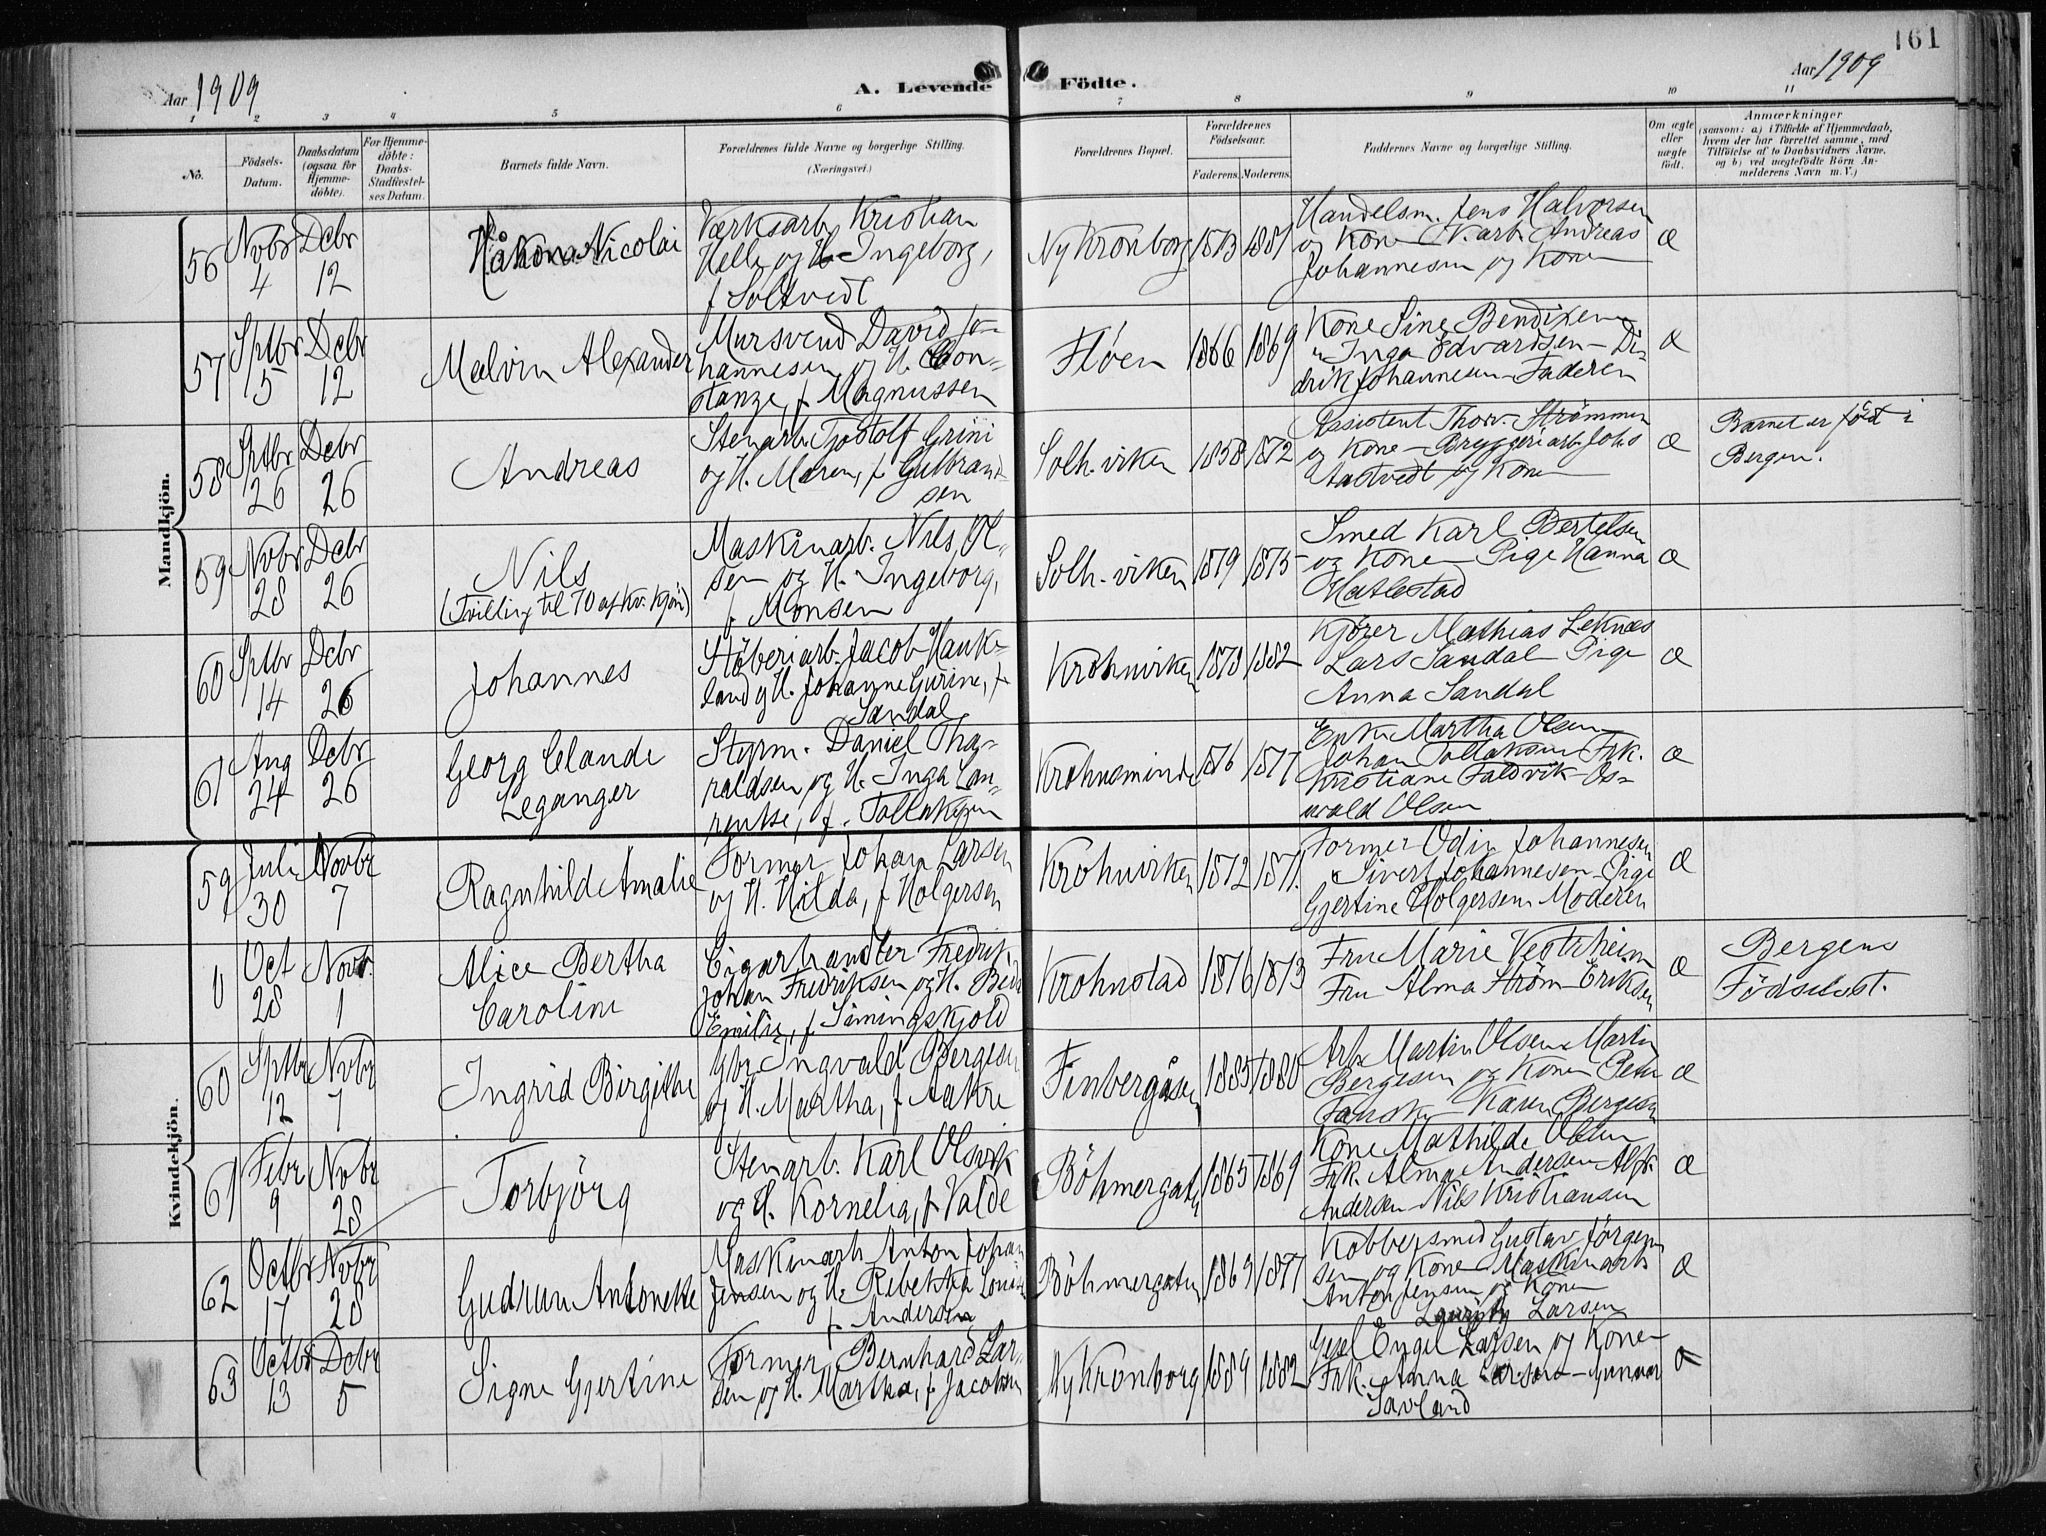 161
Aar 1909
A. Levende Födte.
Aar 1909
1 2 3 4 5 6 7 8 9 10 11
No.
Födsels-
Datum.
Daabsdatum
(ogsaa for
Hjemme-
döbte).
For Hjemme-
döbte:
Daabs-
Stadfæstel-
ses Datum.
Barnets fulde Navn.
Forældrenes fulde Navne og borgerlige Stilling.
(Næringsvei.)
Forældrenes Bopæl.
Forældrenes
Födselsaar.
Faderens. Moderens.
Faddernes Navne og borgerlige Stilling.
Om ægte
eller
uægte
födt.
Anmærkninger
(saasom: a) i Tilfælde af Hjemmedaab,
hvem der har forrettet samme, med
Tilföielse af to Daabsvidners Navne,
og b) ved uægtefödte Börn An-
melderens Navn m. V.)
Mandkjön.
56
Novbr
4
Dcbr
12
Håkon Nicolai
Værksarb. Kristian
Helle og H. Ingeborg,
f Soltvedt
Ny Kronborg
1873
1881
Handelsm. Jens Halvorsen
og Kone N. arb. Andreas
Johannesen og Kone
Æ
57
Sptbr
15
Dcbr
12
Malvin Alexander
Mursvend David Jo-
hannesen og H. Con-
stanze, f. Magnussen
Fløen
1866
1869
Kone Sine Bendixen
" Inga Edvardsen - Di-
drik Johannesen Faderen
Æ
58
Sptbr
26
Dcbr
26
Andreas
Stenarb. Tjostolf Grini
og H. Maren, f Gulbrand-
sen
Solh. viken
1858
1872
Assistent Thorv. Strømmen
og Kone - Bryggeriarb. Johs
Aastvedt og Kone
Æ
Barnet er født i
Bergen.
59
Novbr
28
Dcbr
26
Nils
(Tvilling til 70 af Kv. Kjøn)
Maskinarb. Nils Ol-
sen og H. Ingeborg,
f Monsen
Solh. viken
1879
1875
Smed Karl Bertelsen
og Kone Pige Hanna
Matlestad
Æ
60
Sptbr
14
Dcbr
26
Johannes
Støberiarb. Jacob Hauk-
land og H. Johanne Gurine, f
Sandal
Krohnviken
1878
1882
Kjører Mathias Leknes
Lars Sandal Pige
Anna Sandal
Æ
61
Aug
24
Dcbr
26
Georg Claude
Leganger
Styrm. Daniel Tha-
raldsen og H. Inga Lau-
rentse, f. Tollaksen
Krohnsminde
1876
1877
Enke Martha Olsen
Johan Tollaksen Frk.
Kristiane Faldvik - Os-
wald Olsen
Æ
Kvindekjön.
59
Juli
30
Novbr
7
Ragnhild Amalie
Former Johan Larsen
og H. Hilda, f Holgersen
Krohnviken
1872
1871
Former Odin Johannesen
" Sivert Johannesen - Pige
Gjertine Holgersen Moderen
Æ
0
Oct
28
Novbr.
1
Alice Bertha
Caroline
Cigarhandler Fredrik
Johan Fredriksen og H.
Emilie, f Simingskjold
Krohnstad
1876
1873
Fru Marie Vestrheim
Fru Alma Strøm Eriksen
Æ
Bergens
Födselsst.
60
Sptbr
12
Novbr
7
Ingrid Birgitte
Ingvald Bergesen
og H. Martha, f Aakre
Finbergåsen
1885
1880
Arb. Martin Olsen Martin
Bergesen og Kone Peter
Karen Bergesen
Æ
61
Febr
9
Novbr
28
Torbjörg
Stenarb. Karl Olsvik
og H. Kornelia, f Valde
Böhmergaten
1865
1869
Kone Mathilde Olsen
Frk. Alma Andersen Alfr.
Andersen Nils Kristiansen
Æ
62
Octbr
17
Novbr
28
Gudrun Antonette
Maskinarb. Anton Johan
Jensen og H. Rebekka Louise
f. Andersen
Böhmergaten
1863
1877
Kobbersmed Gustav Jørgen-
sen og Kone Maskinarb.
Anton Jensen og Kone
Æ
63
Octbr
13
Dcbr
5
Signe Gjertine
Former Bernhard Lar-
sen og H. Martha, f. Jacobsen
Ny Kronborg
1889
1882
Larsen
Engel Larsen og Kone
Frk. Anna Larsen - Gunnar
Savland
Æ